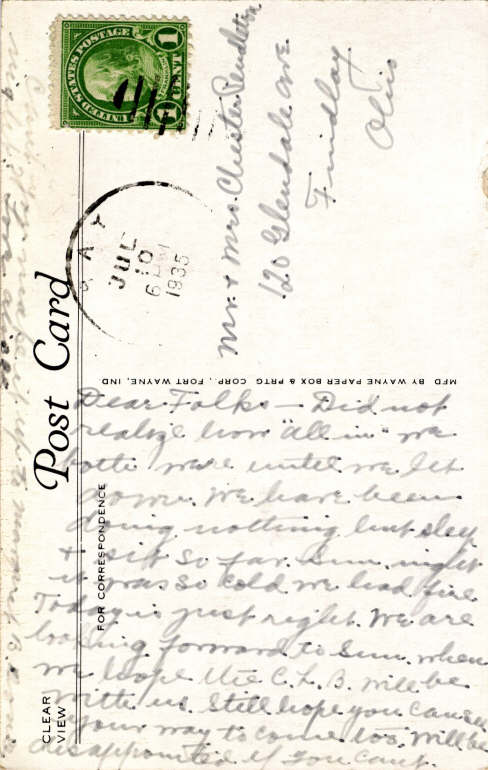 UNITED STATES POSTAGE
1 CENT 1
JUL
10
1935
Mr. & Mrs. Chester Pendleton
120 Glendale Ave
Findlay
Ohio
Post Card
MFD BY WAYNE PAPER BOX & PRTG CORP., FORT WAYNE, IND
FOR CORRESPONDENCE
CLEAR
VIEW
Dear Folks - Did not
realize how "all in" we
both were until we let
down. We have been
doing nothing but sleep
& sit so far. Sun. night
it was so cold we had fire
Today is just right. We are
looking forward to Sun. when
we hope the C. L. B. will be
with us. Still hope you can see
your way to come too. Will be
disappointed if you can't.